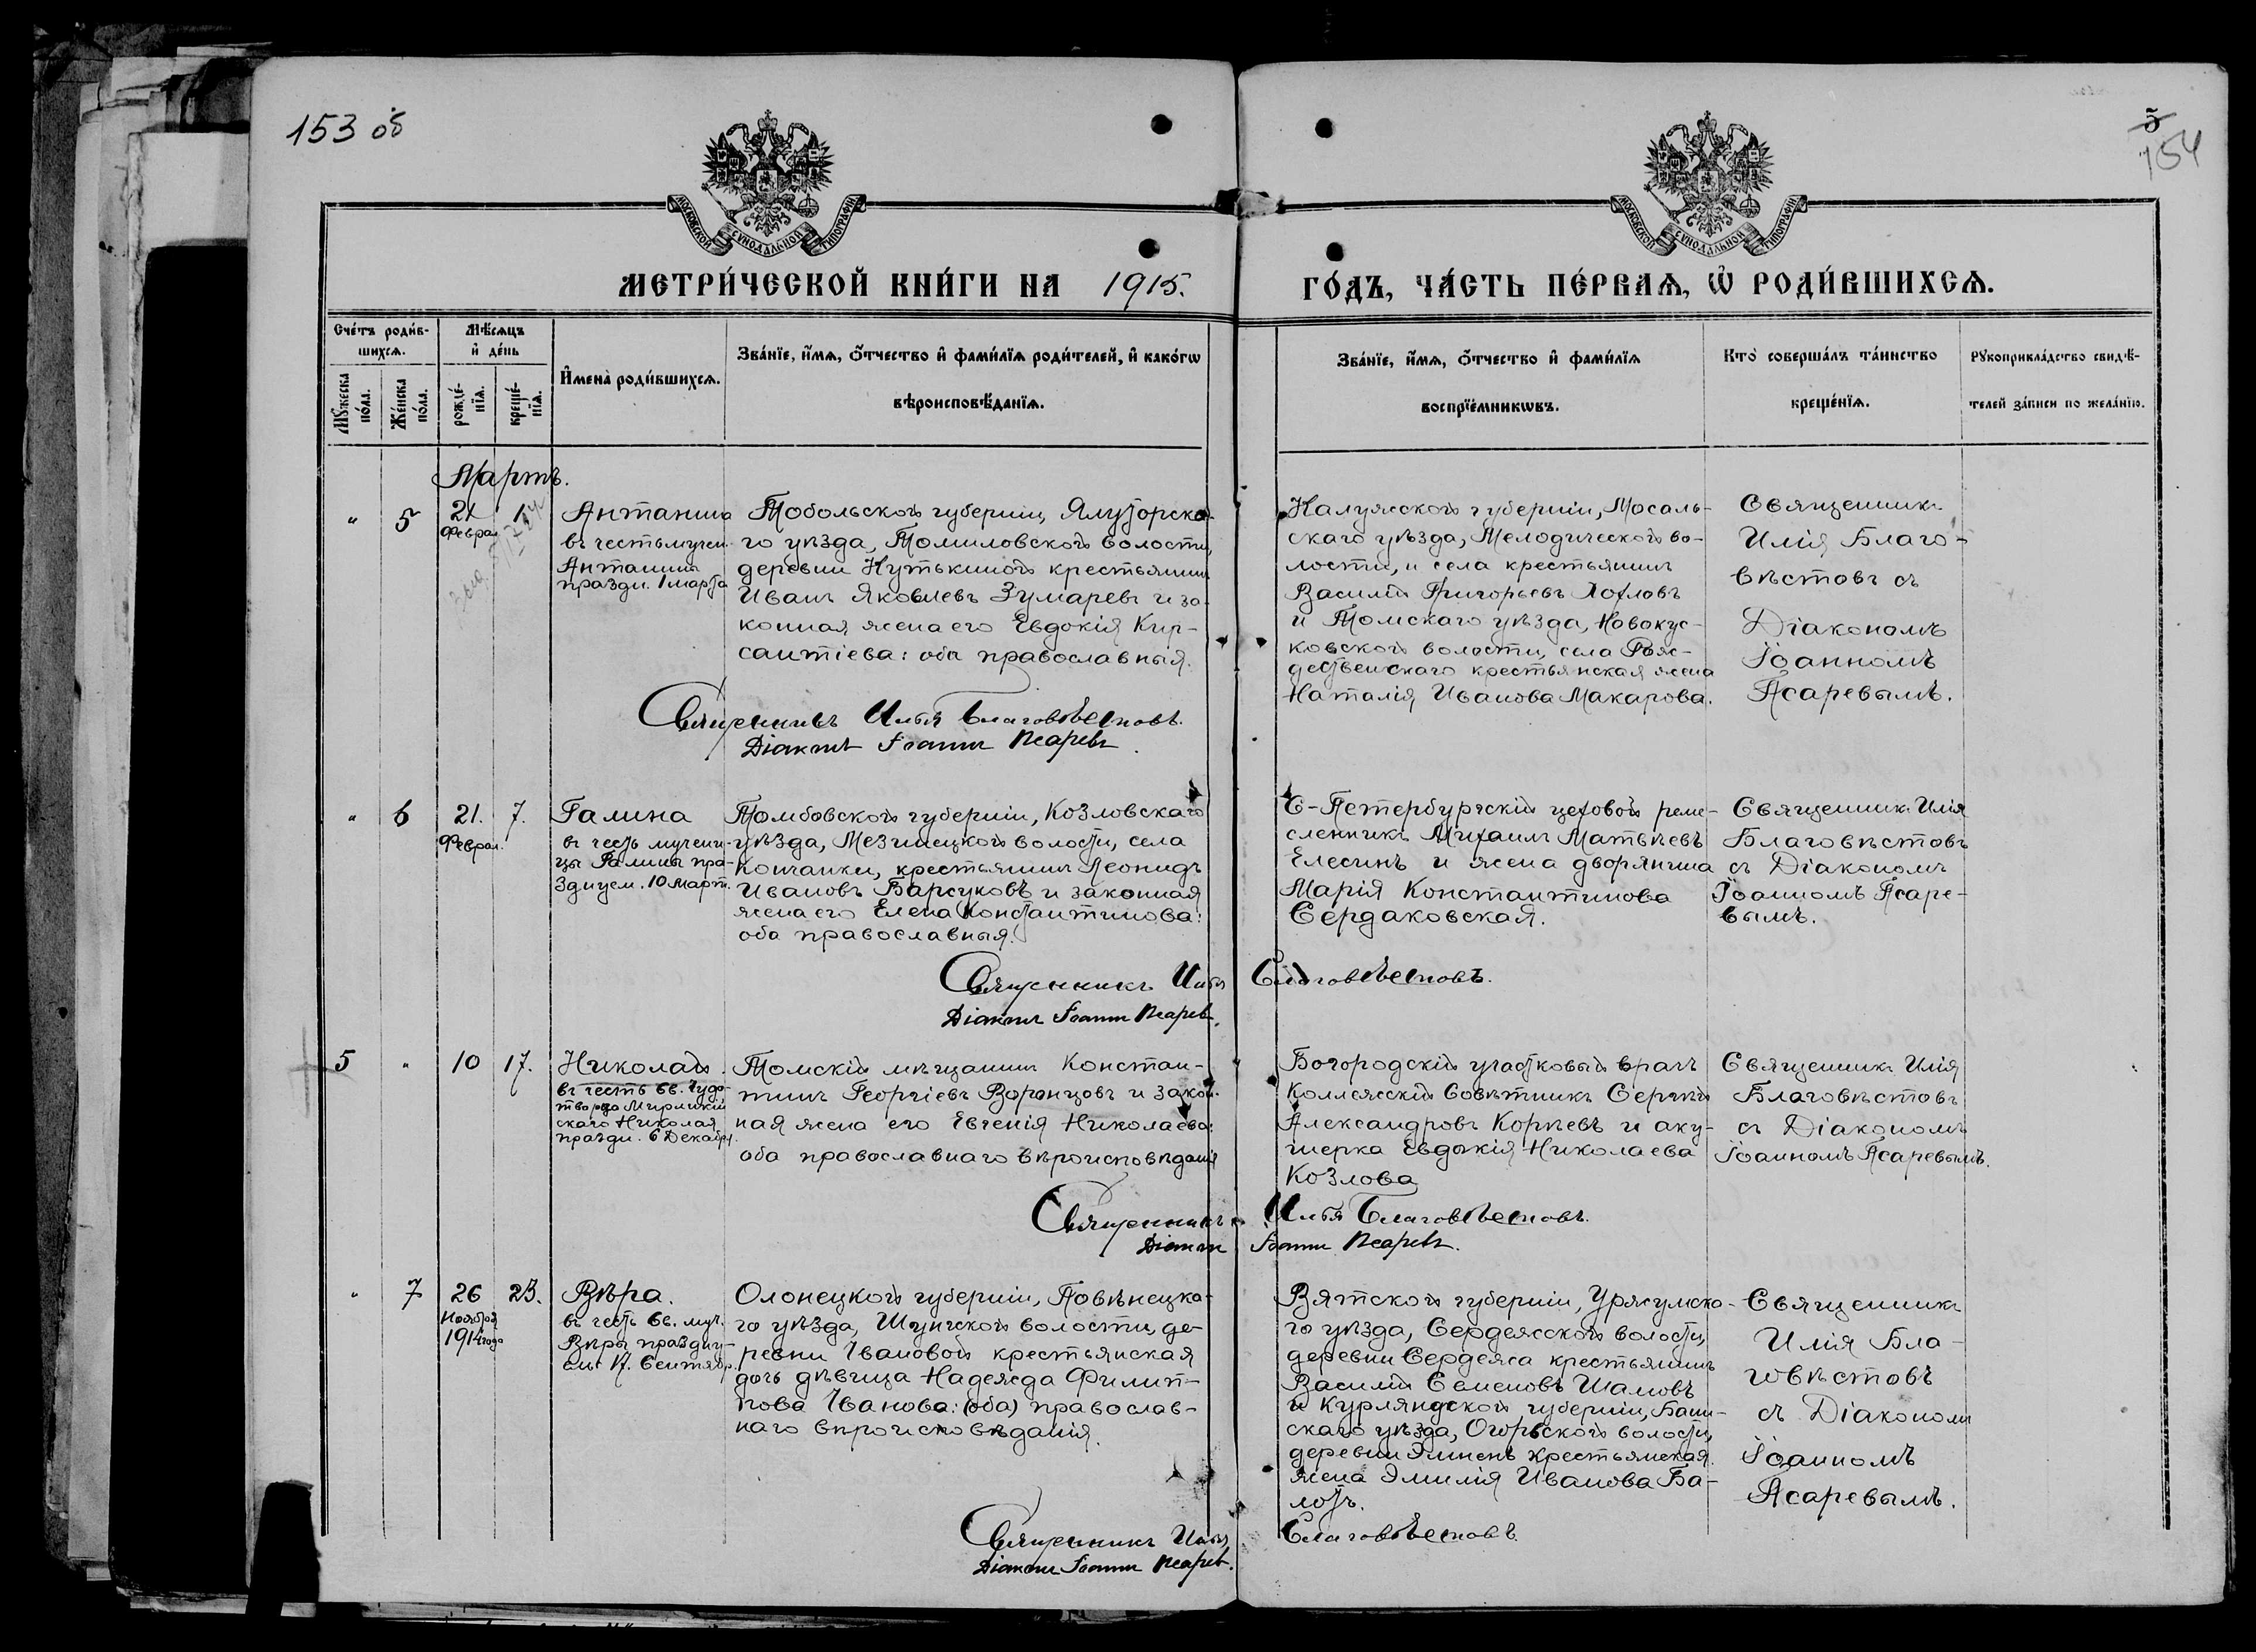 153 об
5
154
МОСКОВСКОЙ СѴНОДАЛЬНОЙ ТИПОГРАФІИ
МОСКОВСКОЙ СѴНОДАЛЬНОЙ ТИПОГРАФІИ
МЕТРИ́ЧЕСКОЙ КНИ́ГИ НА 1915. ГО́ДЪ, ЧА́СТЬ ПЕ́РВАѦ, Ѽ РОДИ́ВШИХСѦ.
Сче́тъ роди́в-
шихсѧ.
Мꙋжеска
по́ла.
Же́нска
по́ла.
Мѣ́сѧцъ
и҆ де́нь
рожде́-
нїѧ.
креще́-
нїѧ.
И҆мена̀ роди́вшихсѧ.
Зва́нїе, и҆́мѧ, ѻ҆́тчество и҆ фами́лїѧ роди́телей, и҆ како́гѡ
вѣроисповѣ́данїѧ.
Зва́нїе, и҆́мѧ, ѻ҆́тчество и҆ фами́лїѧ
воспрїе́мникѡвъ.
Кто̀ соверша́лъ та́инство
креще́нїѧ.
Рꙋкоприкла́дство свидѣ́-
телей за́писи по жела́нїю.
Мартъ.
" 5 21 1
Феврал
Антанина
въ честь мучен.
Антанины
праздн. 1 марта
Тобольской губерніи, Ялуторска-
го уѣзда, Томиловской волости,
деревни Нутькиной крестьянинъ
Иванъ Яковлевъ Зумаревъ и за-
конная жена его Евдокія Кир-
сантіева: оба православныя.
Калужской губерніи, Мосаль-
скаго уѣзда, Мелодической во-
лости, и села крестьянинъ
Василій Григорьевъ Хохловъ
и Томскаго уѣзда, Новокус-
ковской волости, села Рож-
дественскаго крестьянская жена
Наталія Иванова Макарова.
Священникъ
Илія Благо-
вѣстовъ съ
Діакономъ
Іоанномъ
Псаревымъ.
Священникъ Илья Благовѣстовъ.
Діаконъ Іоаннъ Псаревъ.
" 6 21. 7.
Феврал.
Галина
въ честь мучени-
цы Галины пра-
зднуем. 10 март.
Томбовской губерніи, Козловскаго
уѣзда, Мезинецкой волости, села
Кончанки, крестьянинъ Леонидъ
Ивановъ Барсуковъ и законная
жена его Елена Константинова:
оба православныя.
С-Петербургскій цеховой реме-
сленникъ Михаилъ Матвѣевъ
Елесинъ и жена дворянина
Марія Константинова
Сердаковская.
Священникъ Илія
Благовѣстовъ
съ Діакономъ
Іоанномъ Псаре-
вымъ.
Священникъ Илья Благовѣстовъ.
Діаконъ Іоаннъ Псаревъ.
5 " 10 17.
Николай.
въ честь св. Чудо-
творца Мирликий
скаго Николая
праздн. 6 Декабр.
Томскій мѣщанинъ Констан-
тинъ Георгіевъ Воронцовъ и закон-
ная жена его Евгенія Николаева:
оба православнаго вѣроисповѣданія
Богородскій участковый врачъ
Коллежскій Совѣтникъ Сергѣй
Александровъ Корнѣевъ и аку-
шерка Евдокія Николаева
Козлова
Священникъ Илія
Благовѣстовъ
съ Діакономъ
Іоанномъ Псаревымъ.
Священникъ Илья Благовѣстовъ.
Діаконъ Іоаннъ Псаревъ.
" 7 26 23.
Ноября
1914 года
Вѣра.
въ честь св. муч.
Вѣры праздну-
ем. 17. Сентябр.
Олонецкой губерніи, Повѣнецка-
го уѣзда, Шунгской волости, де-
ревни Ивановой крестьянская
дочь дѣвица Надежда Филип-
пова Иванова: (оба) православ-
наго вѣроисповѣданія.
Вятской губерніи, Уржумска-
го уѣзда, Сердежской волости,
деревни Сердежа крестьянинъ
Василій Семеновъ Шамовъ
и Курляндской губерніи, Баун-
скаго уѣзда, волости,
деревни крестьянская
жена Эмилія Иванова Ба-
лотъ.
Священникъ
Илія Бла-
говѣстовъ
съ Діакономъ
Іоанномъ
Псаревымъ.
Священникъ Илья Благовѣстовъ.
Діаконъ Іоаннъ Псаревъ.